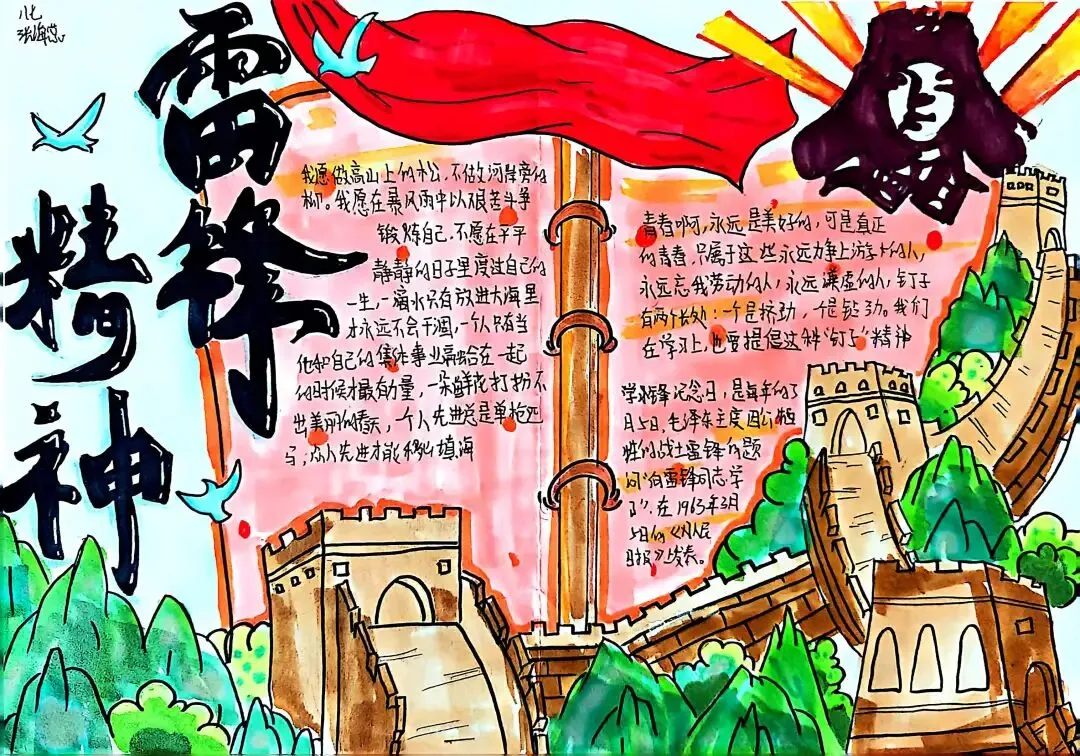 八七
雷锋
精神
我愿做高山上的松，不做河岸旁的
柳。我愿在暴风雨中以艰苦斗争
锻炼自己，不愿在平平
静静的日子里度过自己的
一生，一滴水只有放进大海里
才永远不会干涸，一个人只有当
他和自己的集体事业融合在一起
的时候才最有力量，一朵鲜花打扮不
出美丽的春天，一个人先进总是单枪匹
马；众人先进才能移山填海
青春啊，永远是美好的，可是真正
的青春，只属于这些永远力争上游的人，
永远忘我劳动的人，永远谦虚的人，钉子
有两个长处：一个是挤劲，一个是钻劲。我们
在学习上，也要提倡这种“钉子”精神
学雷锋纪念日，是每年的3
月5日，毛泽东主席因公牺
牲的战士雷锋的题
词“向雷锋同志学
习”。在1963年3月
5日的《人民
日报》发表。